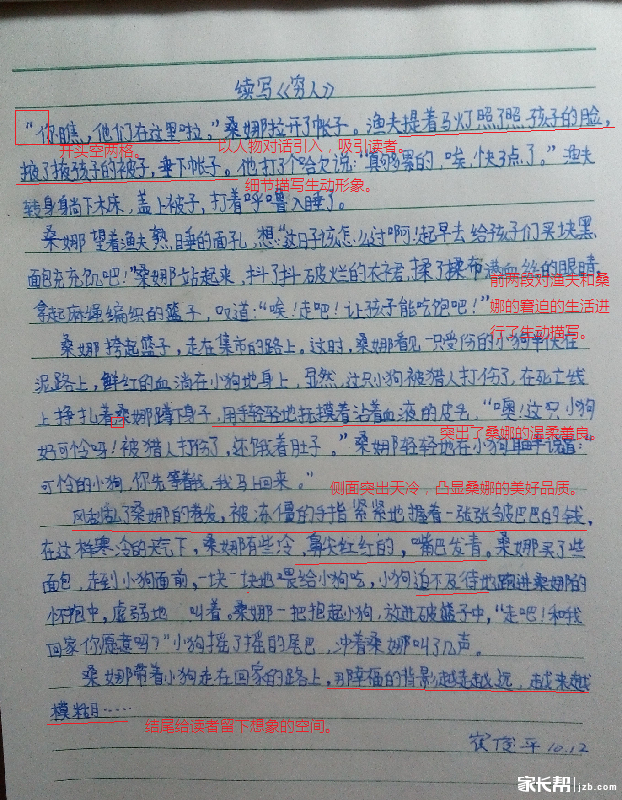 续写《穷人》
“你瞧，他们在这里啦。”桑娜拉开了帐子。渔夫提着马灯照了照孩子的脸，
开头空两格。
以人物对话引入，吸引读者。
掖了掖孩子的被子，垂下帐子。他打了个哈欠说：“真够累的，唉，快3点了。”渔夫
细节描写生动形象。
转身身躺下木床，盖上被子，打着呼噜入睡了。
桑娜望着渔夫熟睡的面孔，想：“这日子该怎么过啊！起早去给孩子们买块黑
面包充充饥吧！”桑娜站起来，抖了抖破烂的衣裙，揉了揉布满血丝的眼睛
前两段对渔夫和桑
拿起麻绳编织的篮子，叹道：“唉！走吧！让孩子能吃饱吧！”
娜的窘迫的生活进
行了生动描写。
桑娜挎起篮子，走在集市的路上。这时，桑娜看见一只受伤的小狗
泥路上，鲜红的血淌在小狗地身上，显然，这只小狗被猎人打伤了，在死亡线
上挣扎着桑娜蹲下身子，用手轻轻地抚摸着沾着血液的皮毛，“噢！这只小狗
突出了桑娜的温柔善良。
好可怜呀！被猎人打伤了，还饿着肚子。”桑娜轻轻地在小狗耳畔说道：
可怜的小狗，你先等着我，我马上回来。”
侧面突出天冷，凸显桑娜的美好品质。
风刮乱了桑娜的卷发，被冻僵的手指紧紧地握着一张张皱巴巴的钱，
在这样寒冷的天气下，桑娜有些冷，鼻尖红红的，嘴巴发青。桑娜买了些
面包，走到小狗面前，一块一块地喂给小狗吃，小狗迫不及待地跑进桑娜的
怀抱中，虚弱地 叫着。桑娜一把抱起小狗，放进破篮子中，“走吧！和我
回家你愿意吗？”小狗摇了摇的尾巴，冲着桑娜叫了几声。
桑娜带着小狗走在回家的路上，那幸福的背影越走越远，越来越
模糊……
结尾给读者留下想象的空间。
10.12
家长帮 jzb.com